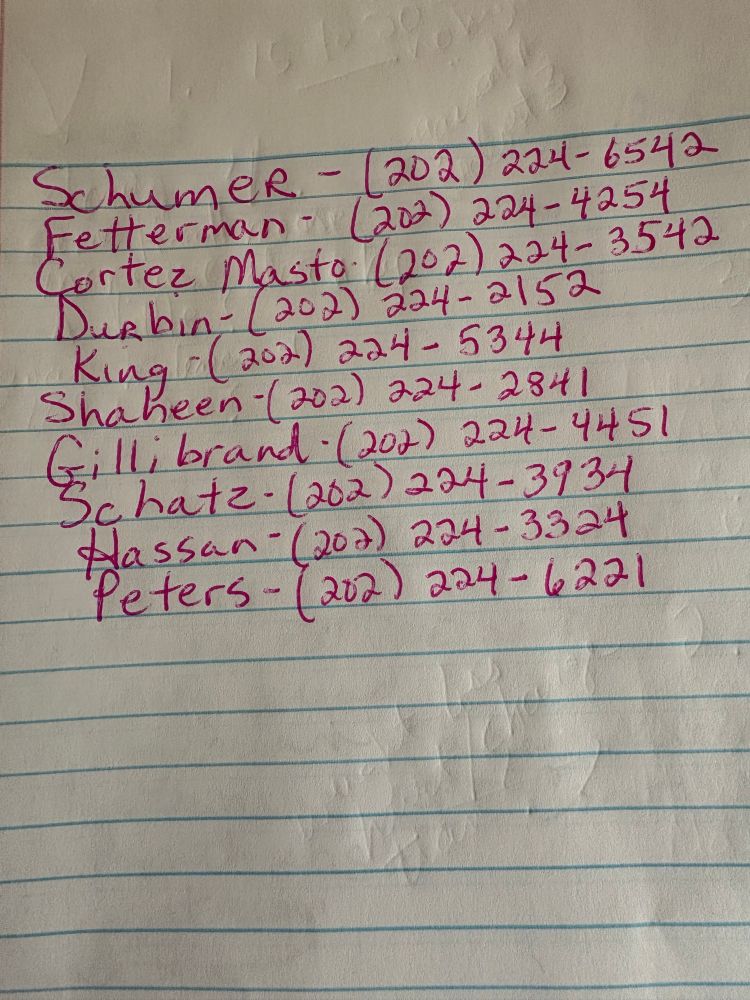 Schumer - (202) 224-6542
Fetterman - (202) 224-4254
Cortez Masto - (202) 224-3542
Durbin - (202) 224-2152
King - (202) 224-5344
Shaheen - (202) 224-2841
Gillibrand - (202) 224-4451
Schatz - (202) 224-3934
Hassan - (202) 224-3324
Peters - (202) 224-6221